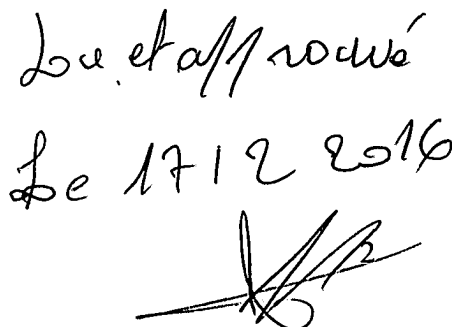 Lu et approuvé
Le 17 12 2016